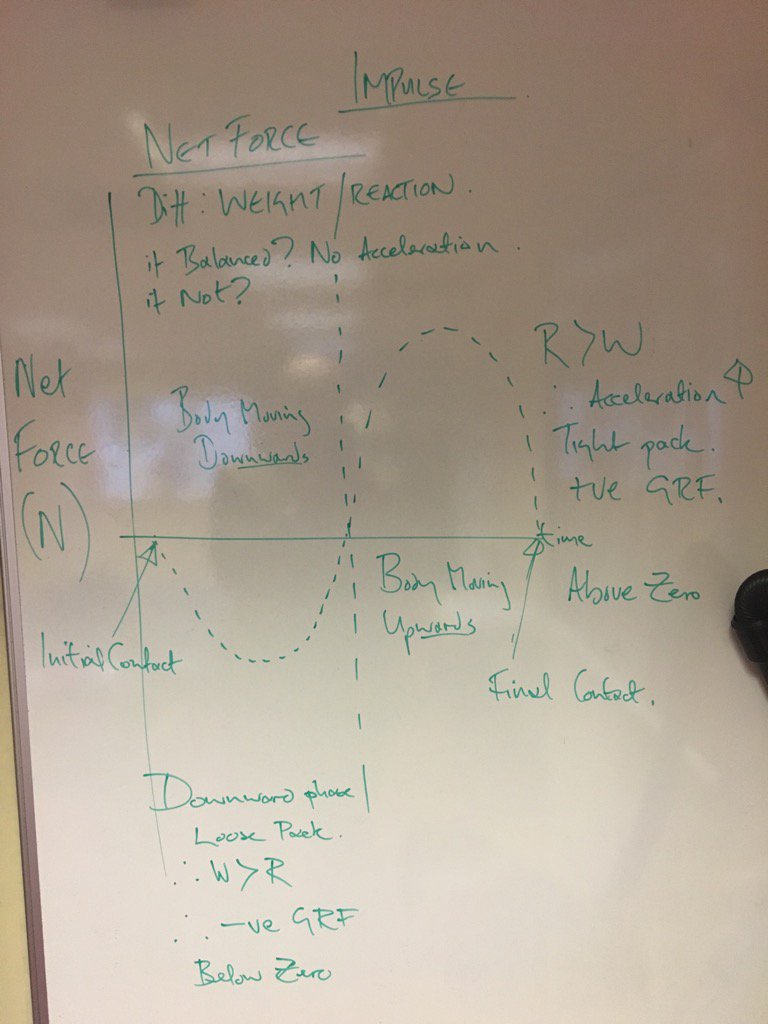 IMPULSE
NET FORCE
Diff: WEIGHT/REACTION.
if Balanced? No Acceleration.
if Not?
Net
FORCE
(N)
Body Moving
Downwards
R>W
∴ Acceleration
Tight pack.
+ve GRF.
time
Above Zero
Body Moving
Upwards
Initial Contact
Final Contact.
Downward phase
Loose Pack.
∴ W>R
∴ -ve GRF
Below Zero